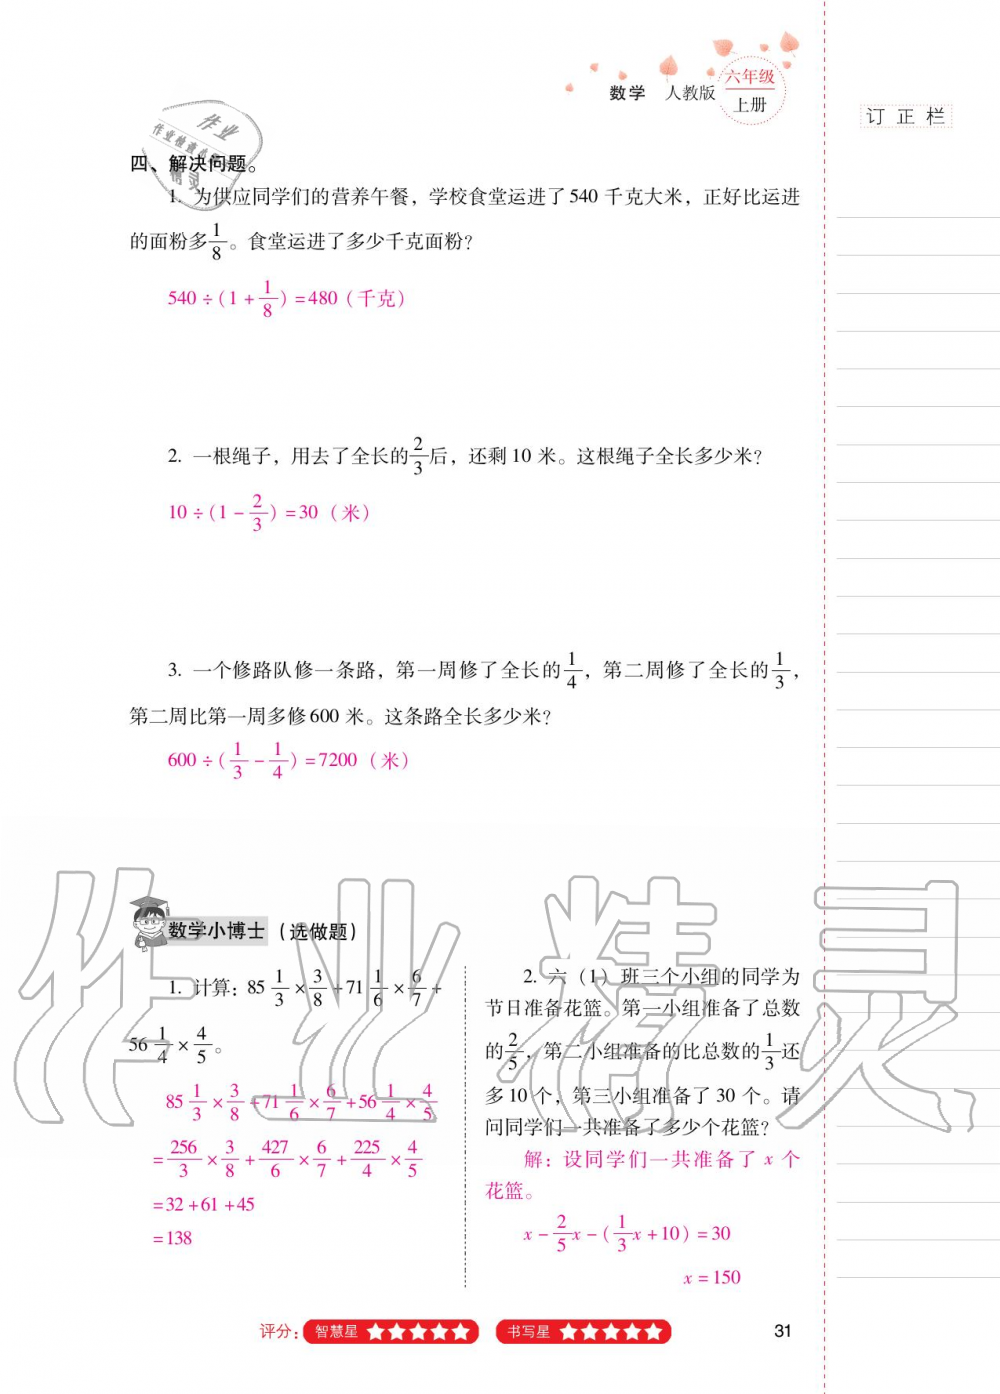 数学 人教版 六年级 上册
订正栏
四、解决问题。
1. 为供应同学们的营养午餐，学校食堂运进了540 千克大米，正好比运进
的面粉多1/8。食堂运进了多少千克面粉？
540÷(1+1/8)=480（千克）
2. 一根绳子，用去了全长的2/3后，还剩10 米。这根绳子全长多少米？
10÷(1-2/3)=30（米）
3. 一个修路队修一条路，第一周修了全长的1/4，第二周修了全长的1/3，
第二周比第一周多修600 米。这条路全长多少米？
600÷(1/3-1/4)=7200（米）
数学小博士（选做题）
1. 计算：85 1/3×3/8+71 1/6×6/7+
56 1/4×4/5。
85 1/3×3/8+71 1/6×6/7+56 1/4×4/5
=256/3×3/8+427/6×6/7+225/4×4/5
=32+61+45
=138
2. 六（1）班三个小组的同学为
节日准备花篮。第一小组准备了总数
的2/5，第二小组准备的比总数的1/3还
多10个，第三小组准备了30个。请
问同学们一共准备了多少个花篮？
解：设同学们一共准备了 x 个
花篮。
x-2/5x-(1/3x+10)=30
x=150
评分： 智慧星 书写星
31
作业精灵
作业
作业检查
精灵